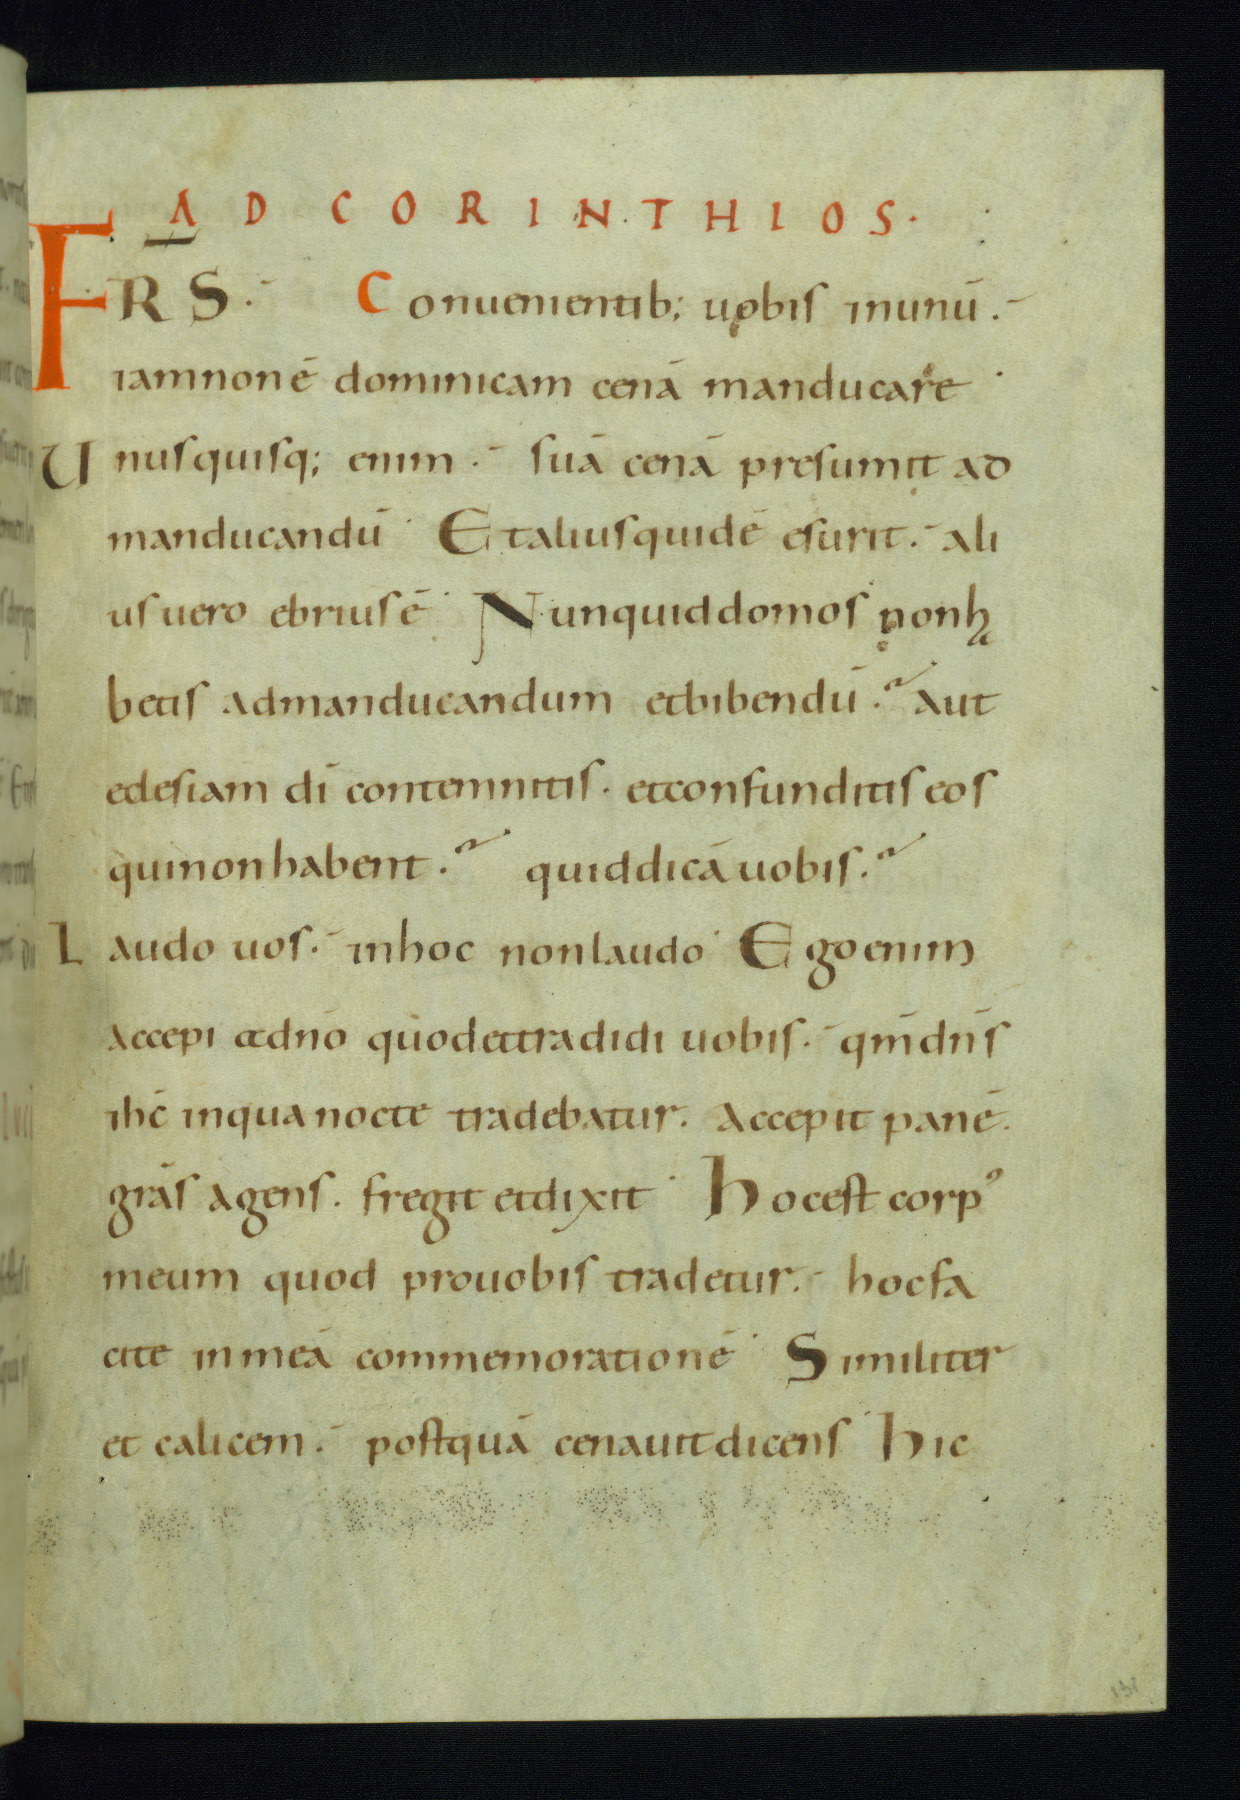 AD CORINTHIOS.
FRS̄. Conuenientib; uobis inunū.
iamnonē dominicam cenā manducare
Unusquisq; enim. suā cenā presumit ad
manducandū Etaliusquidē esurit. ali
usuero ebriusē Nunquiddomos nonha
betis admanducandum etbibendū. aut
eclesiam dī contemnitis. etconfunditiseos
quinonhabent. quiddicāuobis.
Laudo uos. inhoc nonlaudo Egoenim
accepi adn̄o quodettradidi uobis. qm̄dn̄s
ihc̄ inquanocte tradebatur. Accepit panē.
grās agens. fregit etdixit Hocest corpꝰ
meum quod prouobis tradetur. hocfa
cite inmeā commemorationē Similiter
et calicem. postquā cenauitdicens hic